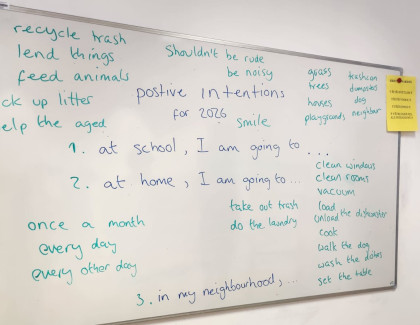 recycle trash
lend things
feed animals
ck up litter
elp the aged
Shouldn't be rude
be noisy
postive intentions
for 2026
smile
grass
trees
houses
playgrounds
trashcan
dumpsters
dog
neighbor
1. at school, I am going to ....
2. at home, I am going to ...
clean windows
clean rooms
vacuum
load
unload the dishwasher
cook
walk the dog
wash the dishes
set the table
take out trash
do the laundry
once a month
every day
every other day
3. in my neighbourhood, ...